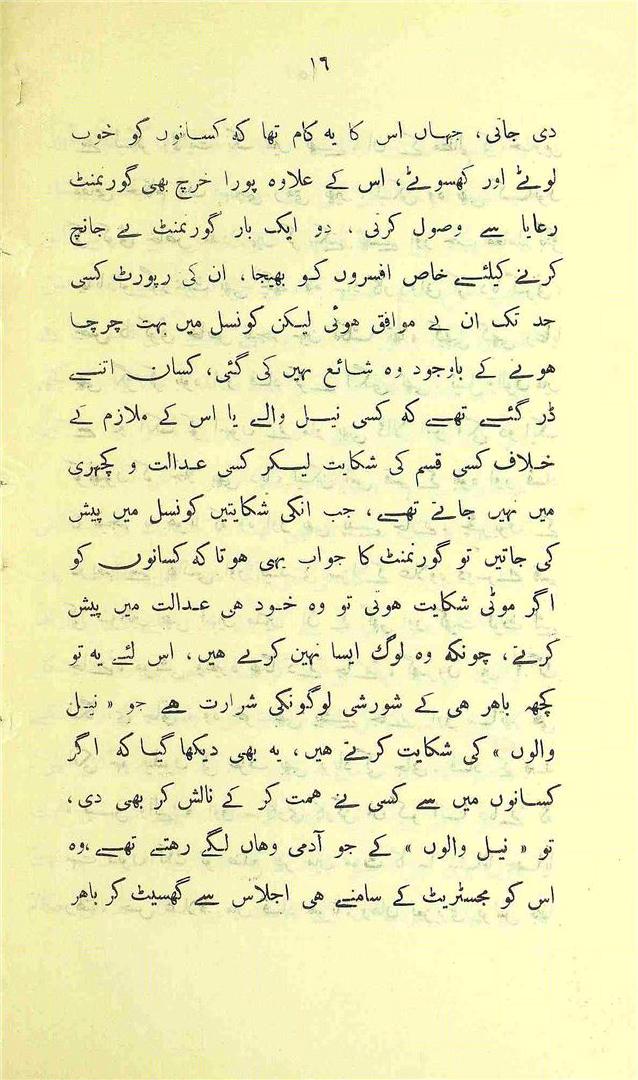 ١٦
دی جاتی، جہاں اس کا یہ کام تھا کہ کسانوں کو خوب
لوٹے اور کھسوٹے، اس کے علاوہ پورا خرچ بھی گورنمنٹ
رعایا سے وصول کرتی، دو ایک بار گورنمنٹ نے جانچ
کرنے کیلئے خاص افسروں کو بھیجا، ان کی رپورٹ کسی
حد تک ان نے موافق ہوئی لیکن کونسل میں بہت چرچا
ہونے کے باوجود وہ شائع نہیں کی گئی، کسان اتنے
ڈر گئے تھے کہ کسی نیل والے یا اس کے ملازم کے
خلاف کسی قسم کی شکایت لیکر کسی عدالت و کچہری
میں نہیں جاتے تھے، جب انکی شکایتیں کونسل میں پیش
کی جاتیں تو گورنمنٹ کا جواب یہی ہوتا کہ کسانوں کو
اگر موٹی شکایت ہوتی تو وہ خود ھی عدالت میں پیش
کرتے، چونکہ وہ لوگ ایسا نہین کرتے ھیں، اس لئے یہ تو
کچھہ باھر ھی کے شورشی لوگونکی شرارت ھے جو « نیل
والوں » کی شکایت کرتے ھیں، یہ بھی دیکھا گیا کہ اگر
کسانوں میں سے کسی نے ھمت کر کے نالش کر بھی دی،
تو « نیل والوں » کے جو آدمی وھاں لگے رھتے تھے، وہ
اس کو مجسٹریٹ کے سامنے ھی اجلاس سے گھسیٹ کر باھر